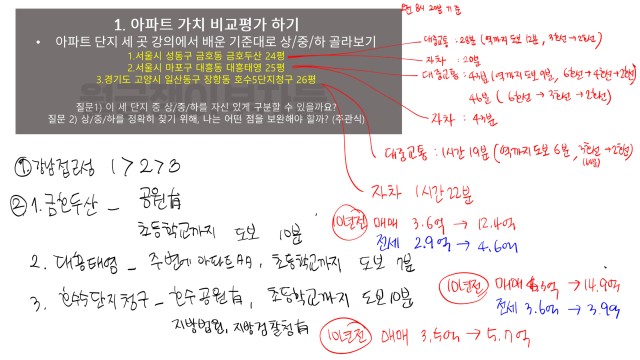 1. 아파트 가치 비교평가 하기
• 아파트 단지 세 곳 강의에서 배운 기준대로 상/중/하 골라보기
1.서울시 성동구 금호동 금호두산 24평
2.서울시 마포구 대흥동 대흥태영 25평
3.경기도 고양시 일산동구 장항동 호수5단지청구 26평
질문1) 이 세 단지 중 상/중/하를 자신 있게 구분할 수 있을까요?
질문 2) 상/중/하를 정확히 찾기 위해, 나는 어떤 점을 보완해야 할까? (주관식)
대중교통 : 28분 (역까지 도보 12분, 3호선→2호선)
자차 : 20분
대중교통 : 43분 (역까지 도보 9분, 6호선→4호선→2호선)
46분 (6호선→3호선→2호선)
자차 : 43분
대중교통 : 1시간 19분 (역까지 도보 6분, 3호선→2호선)
자차 1시간 22분
① 강남접근성 1>2>3
② 1. 금호두산 - 공원有
초등학교까지 도보 10분
2. 대흥태영 - 주변에 아파트, 초등학교까지 도보 7분
3. 호수5단지청구 - 호수공원有, 초등학교까지 도보 10분
지방법원, 지방검찰청有
10년전 매매 3.6억 → 12.4억
전세 2.9억 → 4.6억
10년전 매매 → 14.9억
전세 3.6억 → 3.9억
10년전 매매 3.5억 → 5.7억